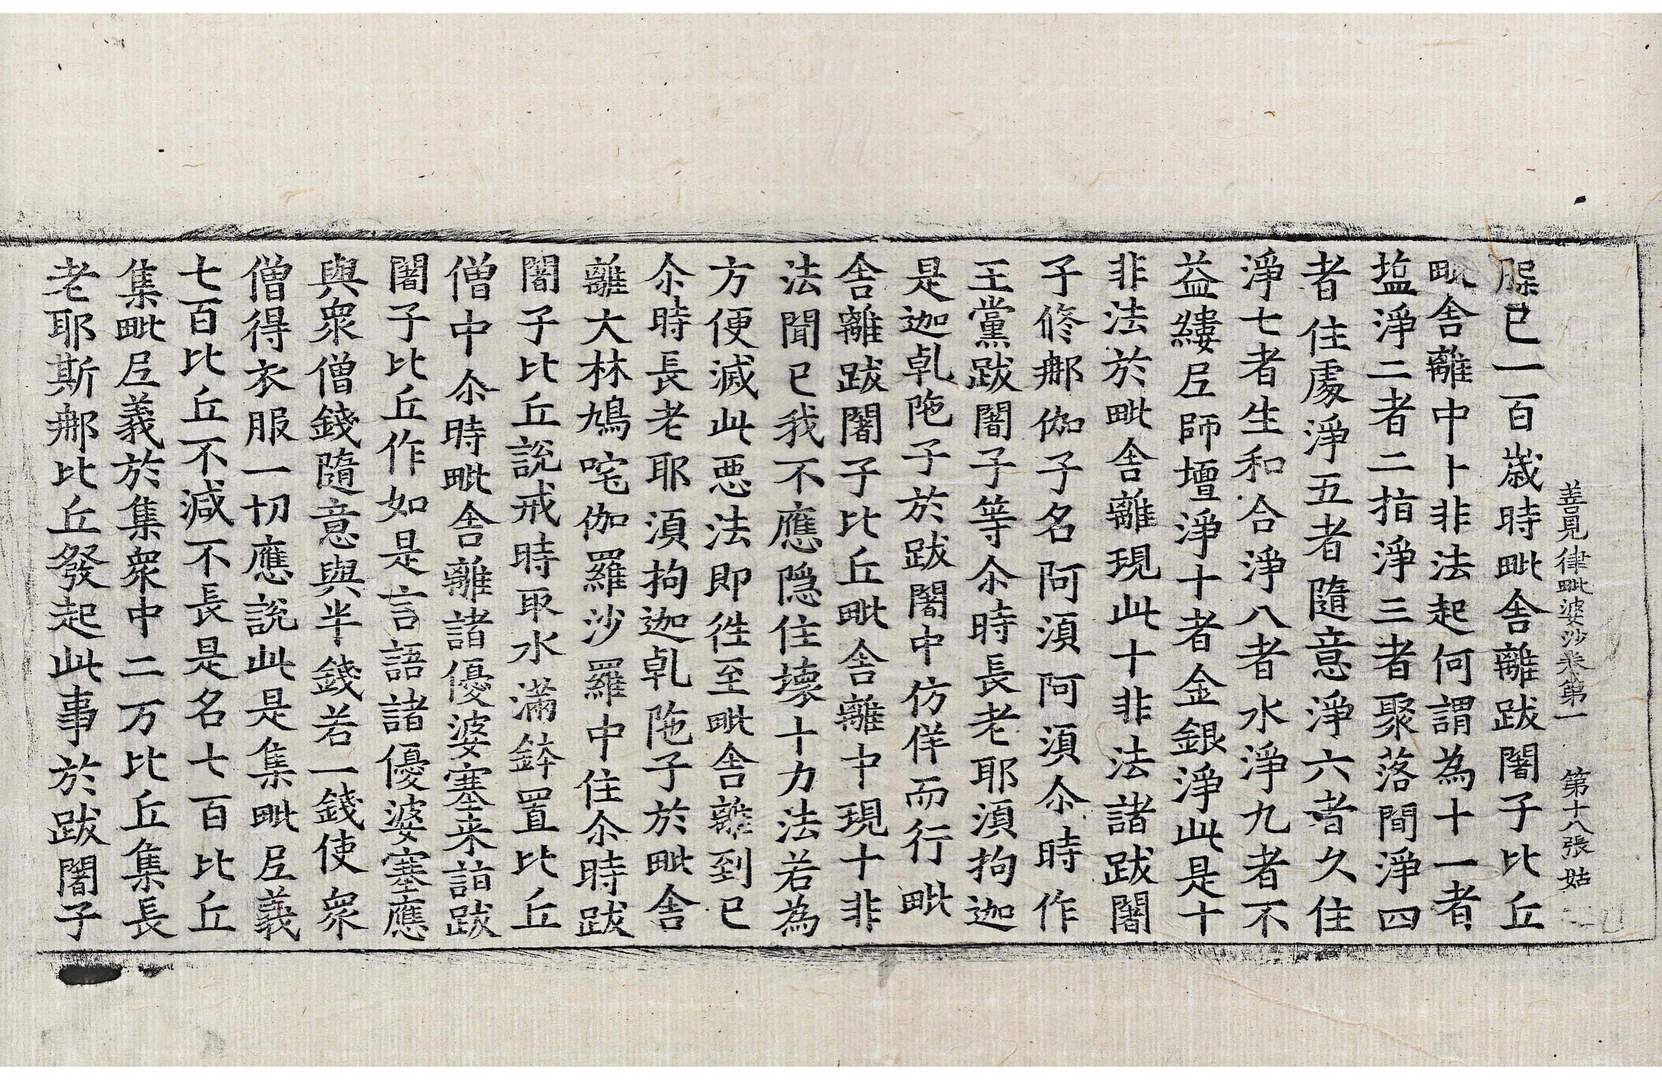 善見律毗婆沙卷第一　第十八張　姑
㷼已一百歲時毗舍離跋闍子比丘
毗舍離中卜非法起何謂為十一者
塩淨二者二指淨三者聚落間淨四
者住處淨五者隨意淨六者久住
淨七者生和合淨八者水淨九者不
益縷尼師壇淨十者金銀淨此是十
非法於毗舍離現此十非法諸跋闍
子修那伽子名阿須阿須尒時作
王黨跋闍子等尒時長老耶須拘迦
是迦乹陁子於跋闍中仿佯而行毗
舍離跋闍子比丘毗舍離中現十非
法聞已我不應隐住壞十力法若為
方便滅此惡法即徃至毗舍離到已
尒時長老耶須拘迦乹陁子於毗舍
離大林鳩咤伽羅沙羅中住尒時跋
闍子比丘說戒時取水滿鉢置比丘
僧中尒時毗舍離諸優婆塞来詣跋
闍子比丘作如是言語諸優婆塞應
與衆僧錢隨意與半錢若一錢使衆
僧得衣服一切應說此是集毗尼義
七百比丘不減不長是名七百比丘
集毗尼義於集衆中二万比丘集長
老耶斯那比丘發起此事於跋闍子